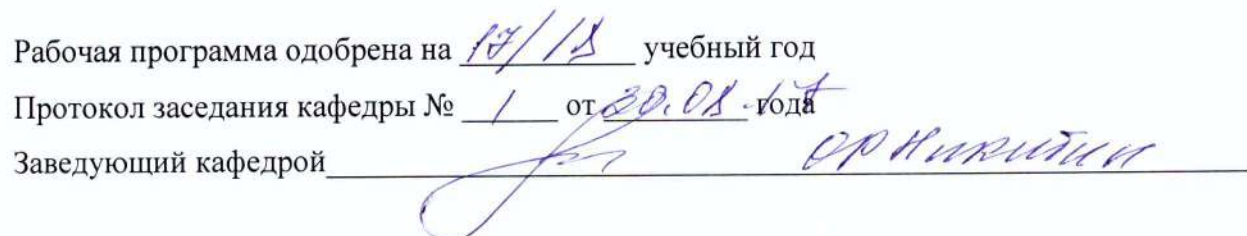 Рабочая программа одобрена на 17/18 учебный год
Протокол заседания кафедры № 1 от 30.08.17 года
Заведующий кафедрой ОР Никитин